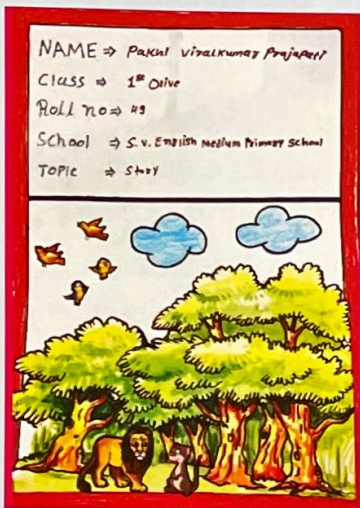 NAME ⇒ Pakhi Viralkumar Prajapati
Class ⇒ 1st Olive
Roll no ⇒ 49
School ⇒ S.V. English Medium Primary School
Topic ⇒ Story